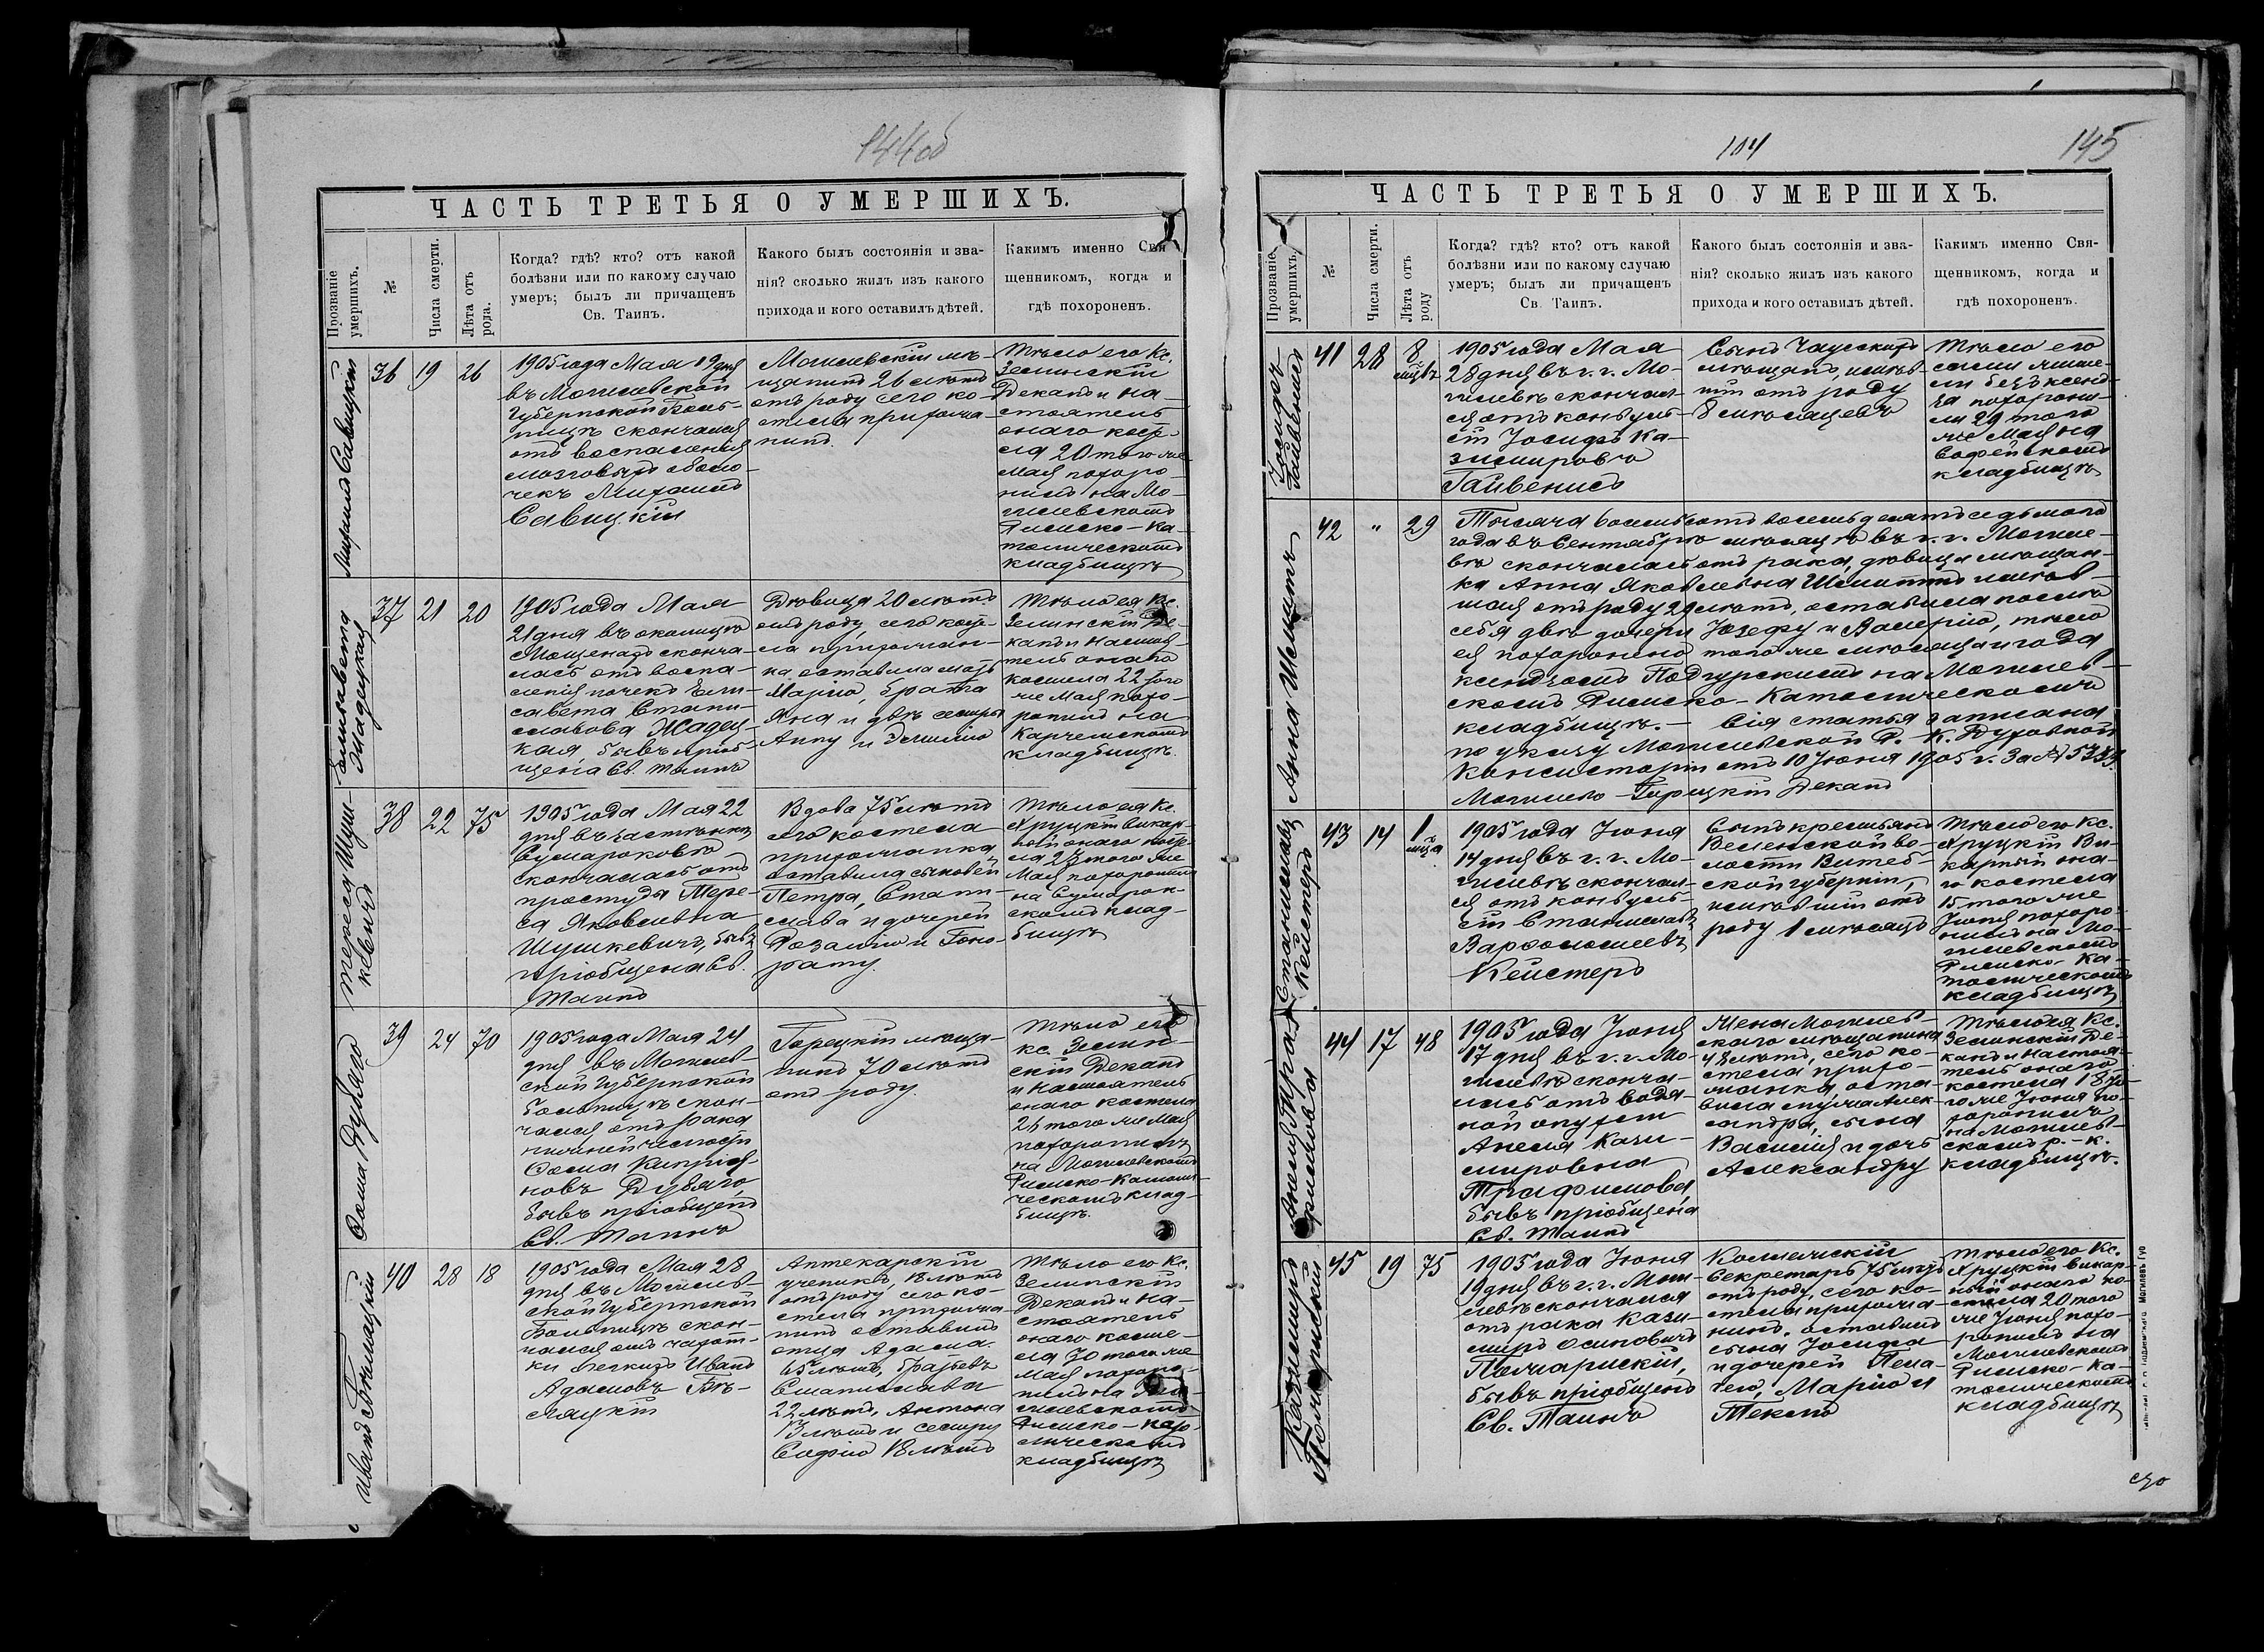 144об
ЧАСТЬ ТРЕТЬЯ О УМЕРШИХЪ.
Прозваніе умершихъ.
№
Числа смерти.
Лѣта отъ рода.
Когда? гдѣ? кто? отъ какой
болѣзни или по какому случаю
умеръ; былъ ли причащенъ
Св. Таинъ.
Какого былъ состоянія и зва-
нія? сколько жилъ изъ какого
прихода и кого оставилъ дѣтей.
Какимъ именно Свя
щенникомъ, когда и
гдѣ похороненъ.
Михаилъ Савицкій
36
19
26
1905 года Мая 19 дня
въ Могилевской
Губернской Боль-
ницѣ скончался
отъ воспаленія
мозговыхъ оболо-
чекъ Михаилъ
Савицкій
Могилевскій мѣ-
щанинъ 26 лѣтъ
отъ роду сего ко-
стела прихожа-
нинъ.
Тѣло его Кс.
Зелинскій
Деканъ и На-
стоятель
онаго косте-
ла 20 того же
Мая похоро-
нилъ на Мо-
гилевскомъ
Римско-Ка-
толическомъ
кладбищѣ
Елисавета
Жадецкая
37
21
20
1905 года Мая
21 дня въ околицѣ
сконча-
лась отъ воспа-
ленія почекъ Ели-
савета Стани-
славова Жадец-
кая, бывъ пріоб-
щена Св. Таинъ
Дѣвица 20 лѣтъ
отъ роду, сего косте-
ла прихожан-
ка оставила мать
Марію, брата
Яна и двѣ сестры
Анну и Эмилію
Тѣло ея Кс.
Зелинскій Де-
канъ и Настоя-
тель онаго
костела 22 того
же Мая похо-
ронилъ на
кладбищѣ.
Тереса Шуш-
кевичъ
38
22
75
1905 года Мая 22
дня въ застѣнкѣ
Сумароково
скончалась отъ
простуды Тере-
са Яковлевна
Шушкевичъ, бывъ
пріобщена Св.
Таинъ
Вдова 75 лѣтъ
сего костела
прихожанка,
оставила сыновей
Петра, Стани-
слава и дочерей
Розалію и Гоно-
рату.
Тѣло ея Кс.
Хруцкій Викар-
ный онаго косте-
ла 23 того же
Мая похоронилъ
на Сумарок-
скомъ клад-
бищѣ
Ѳома Дуваго
39
24
70
1905 года Мая 24
дня въ Могилев-
ской Губернской
больницѣ скон-
чался отъ рака
нижней челюсти
Ѳома Кипріа-
новъ Дуваго,
бывъ пріобщенъ
Св. Таинъ
Горецкій мѣща-
нинъ 70 лѣтъ
отъ роду.
Тѣло его
кс. Зелин-
скій Деканъ
и Настоятель
онаго костела
того же Мая
похоронилъ
на Могилевскомъ
Римско-Католи-
ческомъ клад-
бищѣ.
40
28
18
1905 года Мая 28
дня въ Могилев-
ской Губернской
Больницѣ скон-
чался отъ чахот-
ки легкихъ Иванъ
Адамовъ
Аптекарскій
ученикъ, 18 лѣтъ
отъ роду сего ко-
стела прихожа-
нинъ оставилъ
отца Адама
65 лѣтъ, братьевъ
Станислава
22 лѣтъ, Антона
13 лѣтъ и сестру
Софію 18 лѣтъ
Тѣло его Кс.
Зелинскій
Деканъ и На-
стоятель
онаго косте-
ла 30 того же
Мая похоро-
нилъ на Мо-
гилевскомъ
Римско-Като-
лическомъ
кладбищѣ
104
145
ЧАСТЬ ТРЕТЬЯ О УМЕРШИХЪ.
Прозваніе умершихъ.
№
Числа смерти.
Лѣта отъ роду
Когда? гдѣ? кто? отъ какой
болѣзни или по какому случаю
умеръ; былъ ли причащенъ
Св. Таинъ.
Какого былъ состоянія и зва-
нія? сколько жилъ изъ какого
прихода и кого оставилъ дѣтей.
Какимъ именно Свя-
щенникомъ, когда и
гдѣ похороненъ.
Іосифъ
41
28
8
мцвъ
1905 года Мая
28 дня въ г. г. Мо-
гилевѣ скончал-
ся отъ конвуль-
сій Іосифъ Ка-
зимировъ
Гайвенисъ
Сынъ Чаусскихъ
мѣщанъ, имѣв-
шій отъ роду
8 мѣсяцевъ
Тѣло его
сами
безъ ксенд-
за похорони-
ли 29 того
же Мая на
кладбищѣ
Анна Шемитъ
42
"
29
Тысяча восемьсотъ восемьдесятъ седьмого
года въ Сентябрѣ мѣсяцѣ въ г. г. Могиле-
вѣ скончалась отъ рака, дѣвица мѣщан-
ка Анна Яковлевна Шемитъ имѣв-
шая отъ роду 29 лѣтъ, оставила послѣ
себя двѣ дочери Юзефу и Валерію, тѣло
ея похоронено того же мѣсяца и года
ксендзомъ Подгурскимъ на Могилев-
скомъ Римско-Католическомъ
кладбищѣ. — Сія статья записана
по указу Могилевской Р.-К. Духовной
Консисторіи отъ 10 Іюня 1905 г. За №
Могилево-Горецкій Деканъ
Станиславъ
Кейстеръ
43
14
1
мца
1905 года Іюня
14 дня въ г. г. Мо-
гилевѣ скончал-
ся отъ конвуль-
сій Станиславъ
Варфоломеевъ
Кейстеръ
Сынъ крестьянъ
во-
лости Витеб-
ской губерніи,
имѣвшій отъ
роду 1 мѣсяцъ
Тѣло его Кс.
Хруцкій Ви-
карный она-
го костела
15 того же
Іюня похоро-
нилъ на Мо-
гилевскомъ
Римско-Ка-
толическомъ
кладбищѣ
Анеля Тра-
фимова
44
17
48
1905 года Іюня
17 дня въ г. г. Мо-
гилевѣ сконча-
лась отъ водя-
ной опухоли
Анеля Кази-
мировна
Трафимова,
бывъ пріобщена
Св. Таинъ
Жена Могилев-
скаго мѣщанина
48 лѣтъ, сего ко-
стела прихо-
жанка, оста-
вила мужа Алек-
сандра, сына
Василія и дочь
Александру
Тѣло ея Кс.
Зелинскій Де-
канъ и Настоя-
тель онаго
костела 18 то-
го же Іюня по-
хоронилъ
на Могилев-
скомъ р.-к.
кладбищѣ.
Казимиръ
Пожарискій
45
19
75
1905 года Іюня
19 дня въ г. г. Моги-
левѣ скончался
отъ рака Кази-
миръ Осиповичъ
Пожарискій,
бывъ пріобщенъ
Св. Таинъ
Коллежскій
Секретарь 75 лѣтъ
отъ роду, сего ко-
стела прихожа-
нинъ. оставилъ
сына Іосифа
и дочерей Пела-
гею, Марію и
Теклю
Тѣло его Кс.
Хруцкій Викар-
ный онаго ко-
стела 20 того
же Іюня похо-
ронилъ на
Могилевскомъ
Римско-Ка-
толическомъ
кладбищѣ